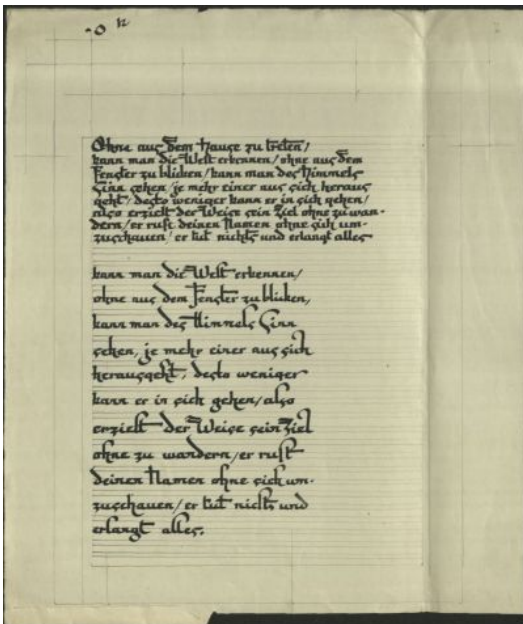 Ohne aus dem Hause zu treten/
kann man die Welt erkennen/ohne aus dem
Fenster zu blicken/kann man des Himmels
Sinn sehen/je mehr einer aus sich heraus
geht/desto weniger kann er in sich gehen/
also erzielt der Weise sein Ziel ohne zu wan-
dern/er ruft deinen Namen ohne sich um-
zuschauen/er tut nichts und erlangt alles
kann man die Welt erkennen/
ohne aus dem Fenster zu blicken,
kann man des Himmels Sinn
sehen, je mehr einer aus sich
herausgeht, desto weniger
kann er in sich gehen/also
erzielt der Weise sein Ziel
ohne zu wandern/er ruft
deinen Namen ohne sich um-
zuschauen/er tut nichts und
erlangt alles.